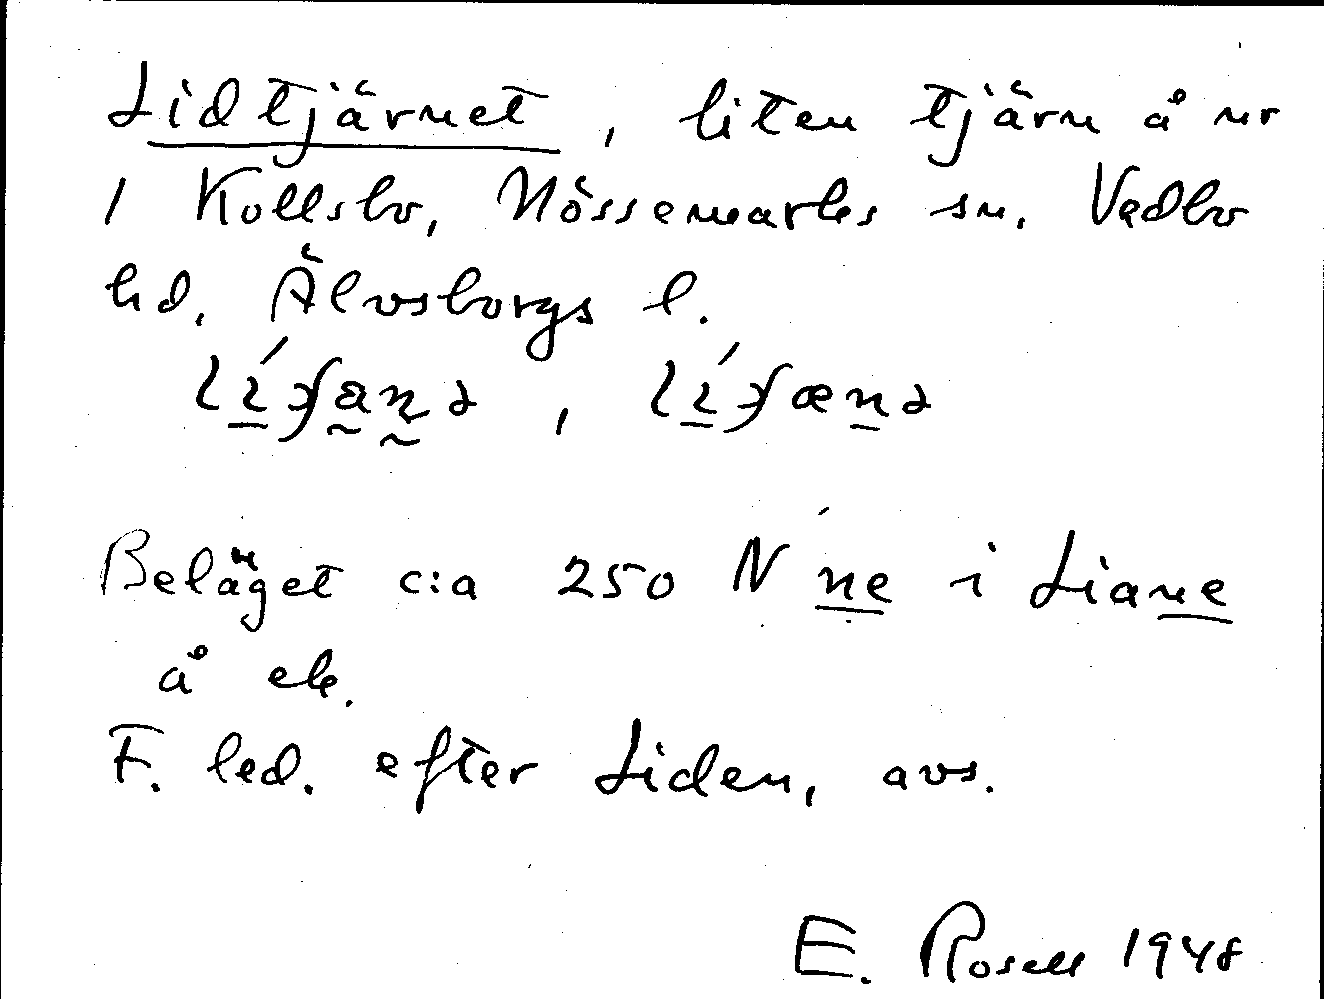 Lidtjärnet, liten tjärn å nr
1 Kollsbo, Nössemarks sn, Vedbo
hd, Älvsborgs l.
Beläget c:a 250 N ne i Liane
å ek.
F. led. efter Liden, avs.
E. Rosell 1948